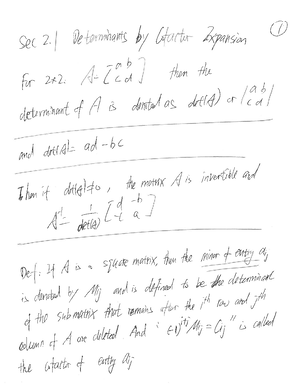 Sec 2.1 Determinants by Cofactor Expansion ①
For 2×2. A = [a b
c d] then the
determinant of A is denoted as det(A) or |a b
c d|
and det(A) = ad - bc
Then if det(A) ≠ 0, the matrix A is invertible and
A⁻¹ = 1/det(A) [d -b
-c a]
Def: If A is a square matrix, then the minor of entry aij
is denoted by Mij and is defined to be the determinant
of the submatrix that remains after the ith row and jth
column of A are deleted. And "(-1)^(i+j) Mij = Cij" is called
the cofactor of entry aij